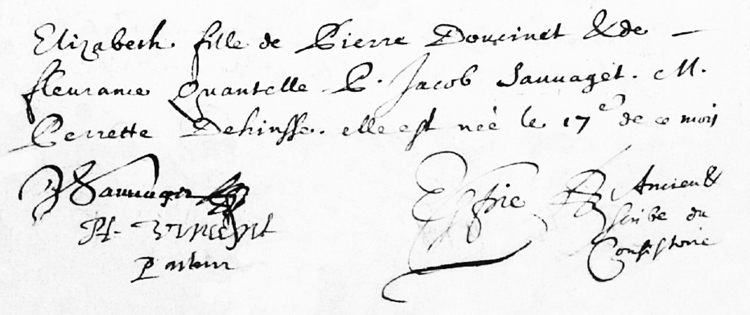 Elizabeth fille de Pierre Doucinet & de
fleurance Quantelle P. Jacob Sauvaget. M.
Perrette Dehinsse. elle est née le 17e de ce mois
J Sauvaget
Ph. Vincent
Pasteur
Espie
Ancien &
scribe du
Consistoire